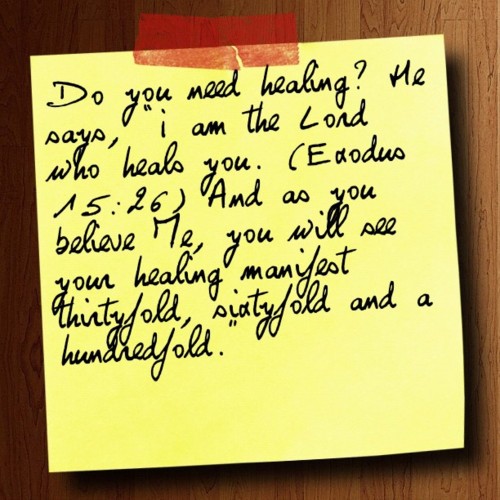 Do you need healing? He
says, "i am the Lord
who heals you. (Exodus
15:26) And as you
believe Me, you will see
your healing manifest
thirtyfold, sixtyfold and a
hundredfold."